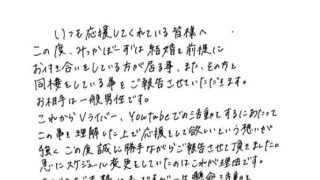 いつも応援してくれている皆様へ
この度、みっかぼーずは結婚を前提に
お付き合いをしている方が居る事、また、その方と
同棲をしている事をご報告させていただきます。
お相手は一般男性です。
これからVライバー、Youtubeでの活動をするにあたって
この事を理解した上で応援をして欲しいという想いが
強く この度誠に勝手ながらご報告させて頂きました。
急にスケジュール変更としていたのはこれが理由です。